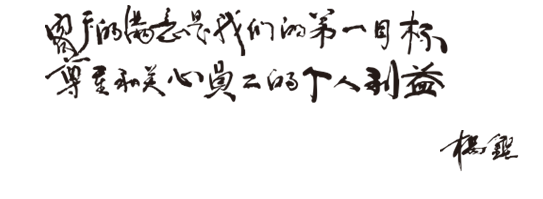 客户的满意是我们的第一目标
尊重和关心员工的个人利益